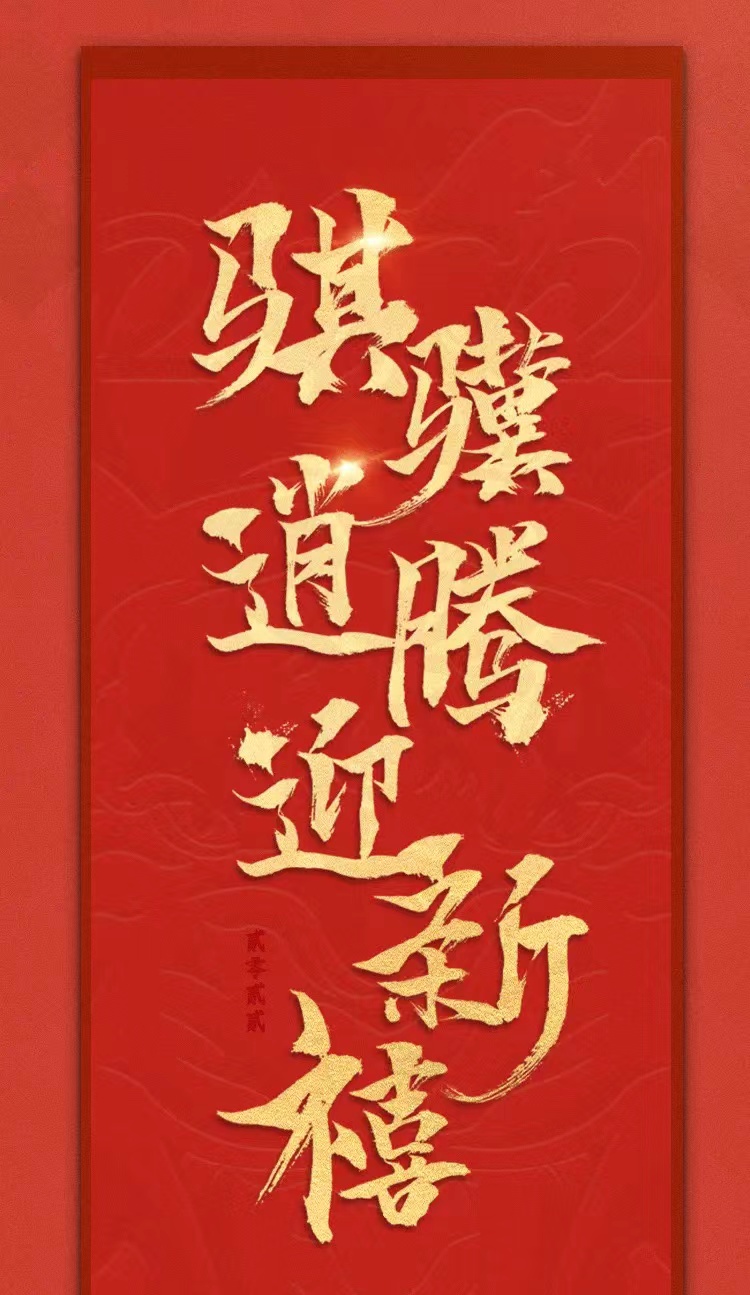 骐骥逍腾迎新禧
贰零贰贰